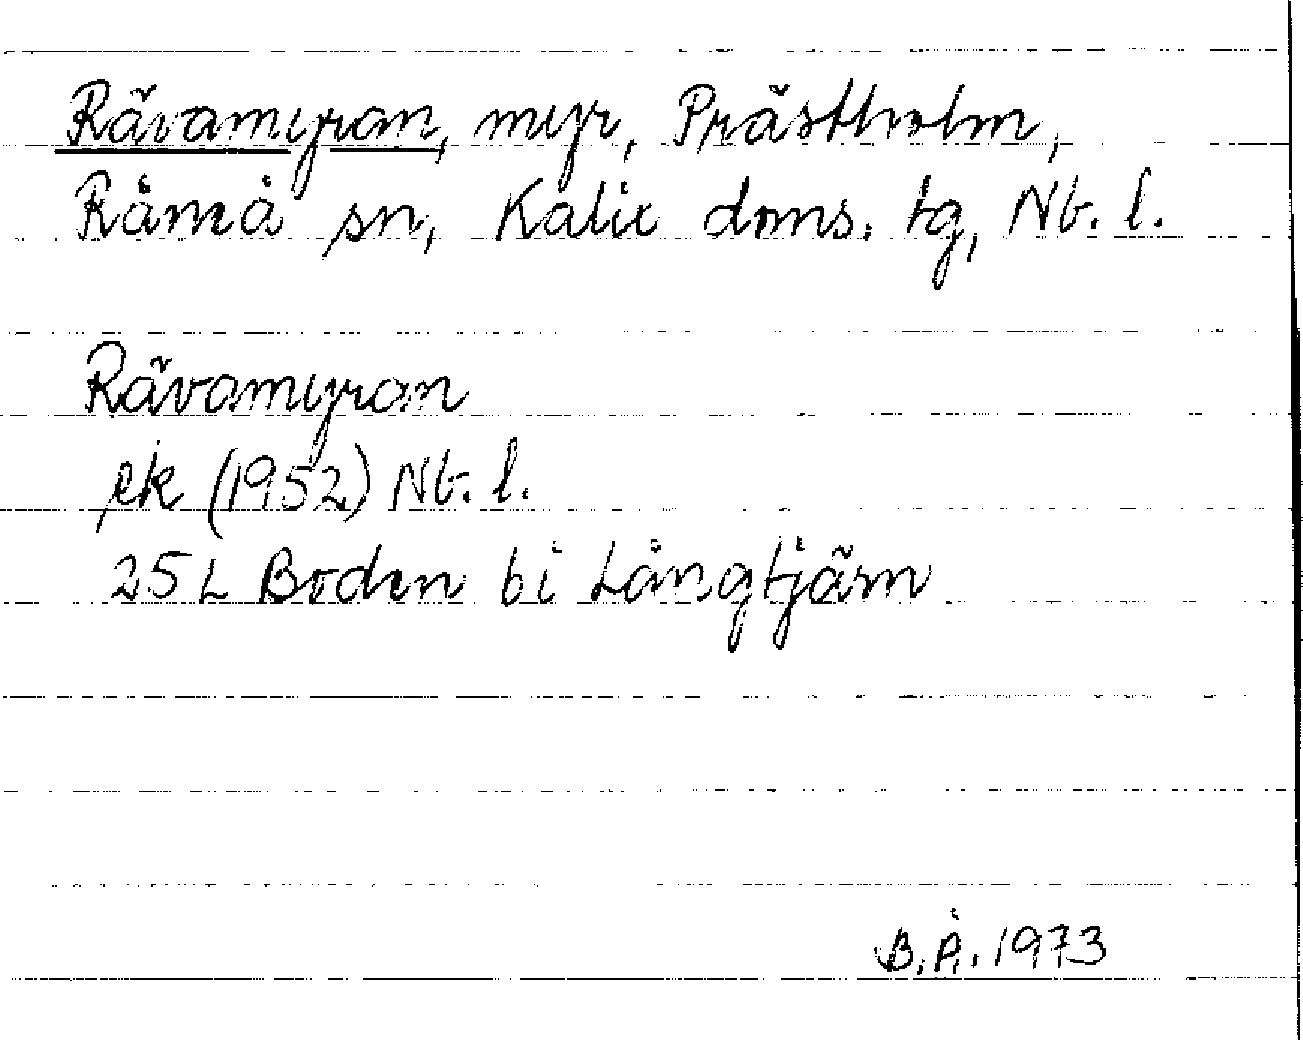 Rävamyran, myr, Prästholm,
Råneå sn, Kalix doms. tg, Nb. l.
Rävamyran
ek (1952) Nb. l.
25 L Boden bi Långtjärn
B. Å. 1973